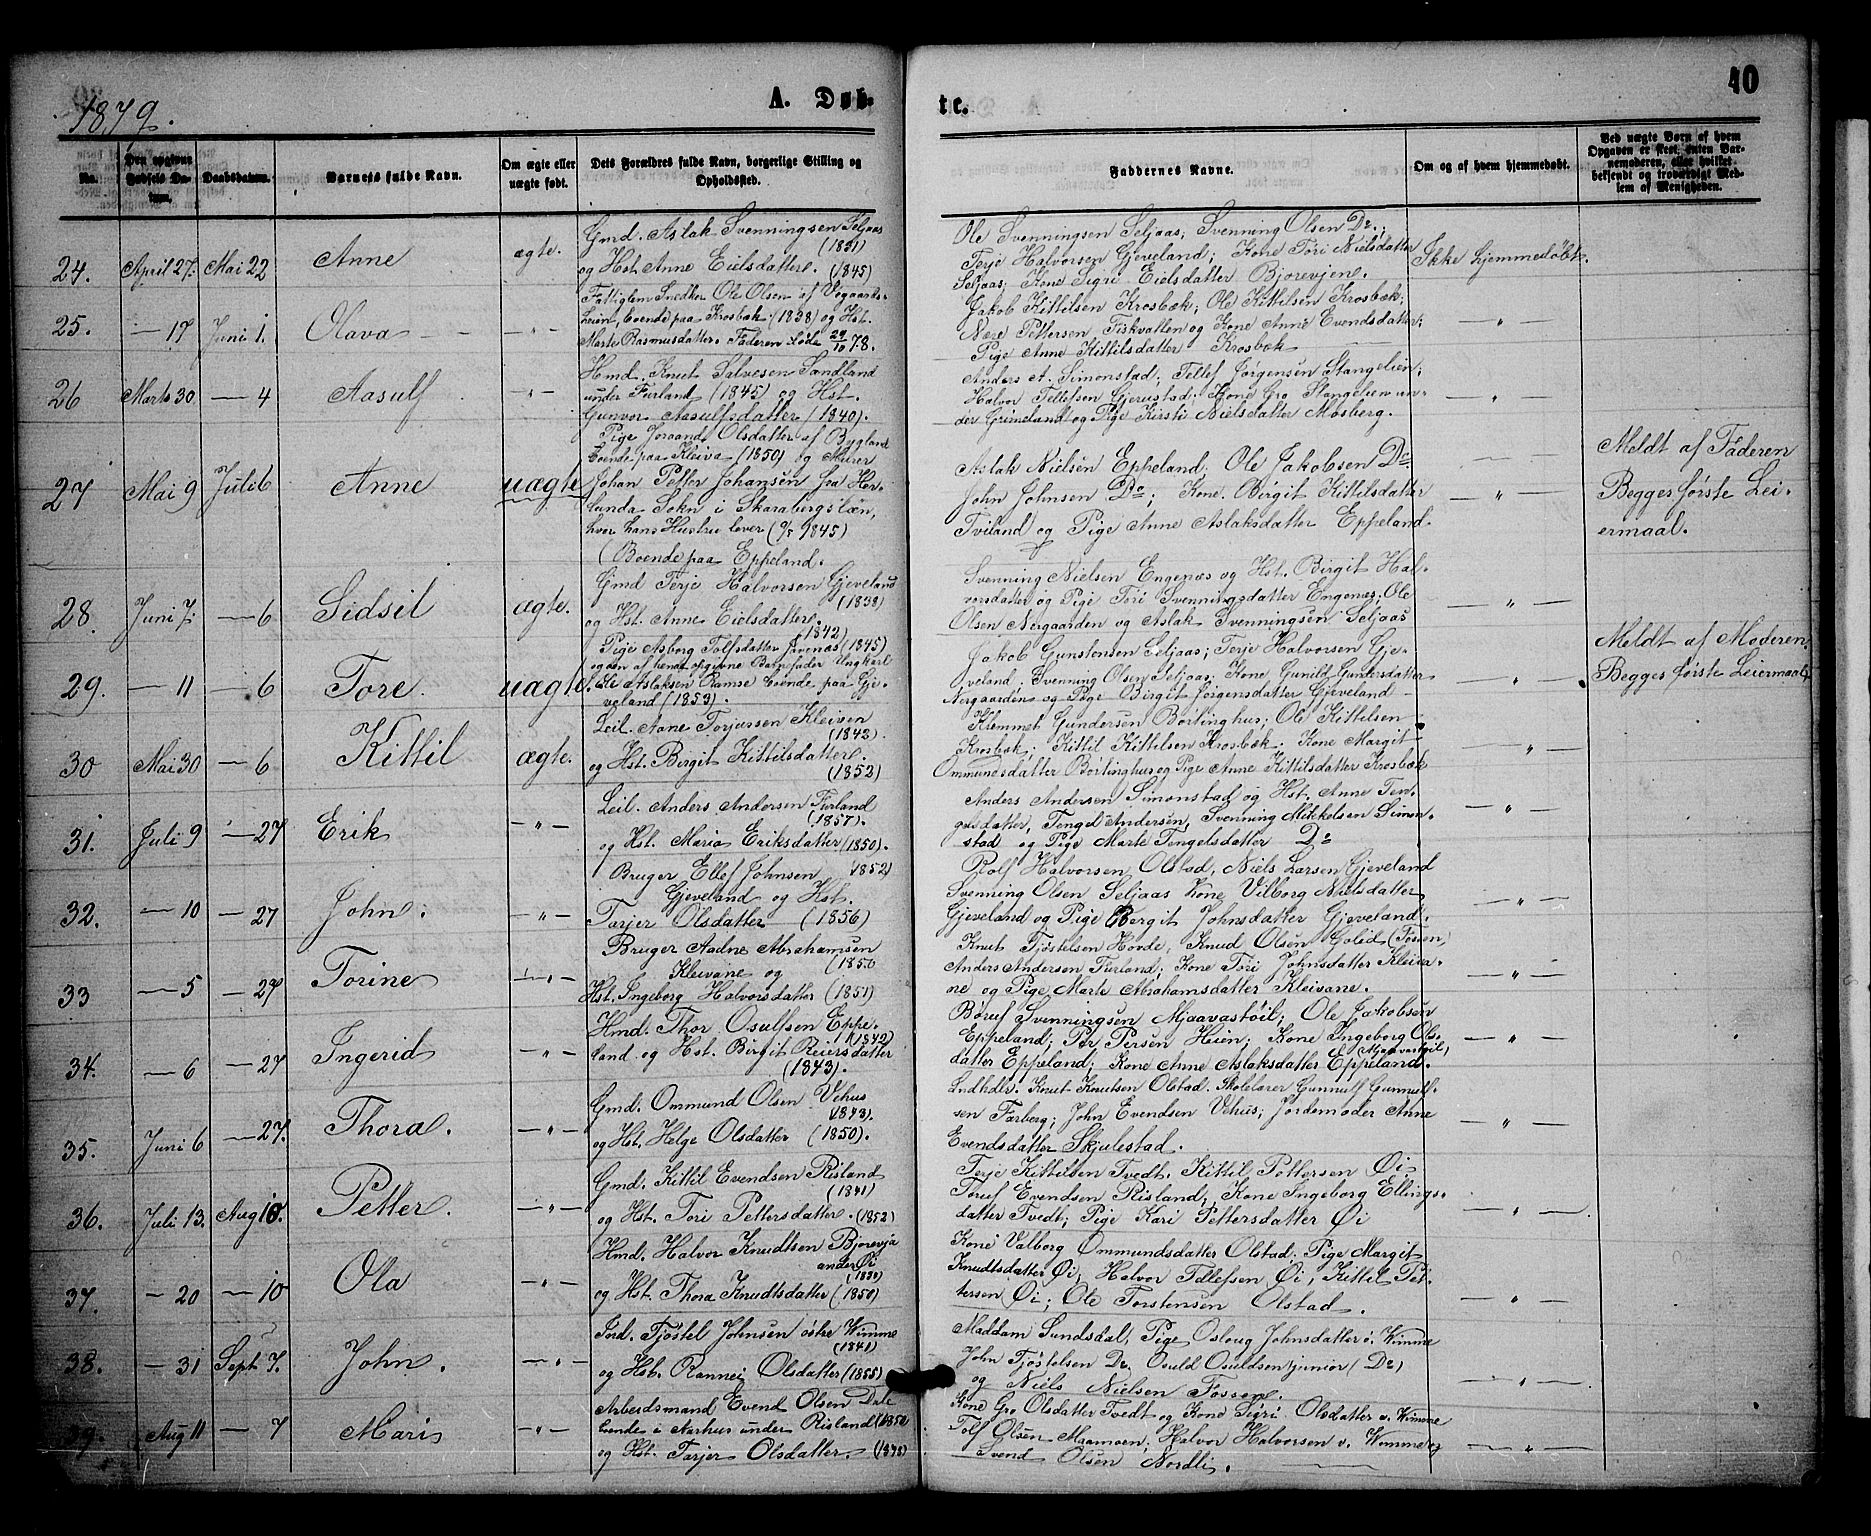 1879.
A. Døb-
te.
40
No.
Den opgivne Fødsels Datum.
Daabsdatum.
Barnets fulde Navn.
Om ægte eller uægte født.
Dets Forældres fulde Navn, borgerlige Stilling og Opholdssted.
Faddernes Navne.
Om og af hvem hjemmedøbt.
Ved uægte Børn af hvem Opgaven er skeet, enten Barnemoderen, eller hvilket bekjendt og troværdigt Medlem af Menigheden.
24. April 27. Mai 22 Anne ægte.
Gmd. Aslak Svenningsen Seljaas
(1831)
og Hst. Anne Eielsdatter. (1845)
Ole Svenningsen Seljaas; Svenning Olsen Do;
Terje Halvorsen Gjeveland; Kone Tori Nielsdatter
Seljaas; Kone Sigri Eielsdatter Bjorevjen.
Ikke hjemmedøbt.
25. — 17 Juni 1. Olava — " —
Fattiglem Snedker Ole Olsen af Vegaarts-
heien, boende paa Krosbæk (1838) og Hst.
Marte Rasmusdatter. Faderen døde 29/10 78.
Jakob Kittilsen Krosbæk; Ole Kittilsen Krosbæk;
Nære Pettersen Fiskvatten og Kone Anne Evendsdatter;
Pige Anne Kittilsdatter Krosbæk
— " —
26 Marts 30 — 4 Aasulf — " —
Hmd. Knut Salvesen Sandland
under Furland (1845) og Hst.
Gunvor Aasulfsdatter (1840).
Anders A. Simonstad; Tellef Jørgensen Stangelien;
Halvor Tellefsen Gjerustad; Kone Gro Stangelien un-
der Grimeland og Pige Kirsti Nielsdatter Mosberg.
— " —
27 Mai 9 Juli 6 Anne uægte
Pige Joraand Olsdatter af Bygland
boende paa Kleiva (1850) og Murer
Johan Petter Johansen fra Her-
lunda Sokn i Skarabergslæn,
hvor hans Hustru lever (9/5 1845)
(Boende paa Eppeland.
Aslak Nielsen Eppeland; Ole Jakobsen Do
John Johnsen Do; Kone Birgit Kittilsdatter
Tveiland og Pige Anne Aslaksdatter Eppeland.
— " —
Meldt af Faderen
Begges første Lei-
ermaal.
28. Juni 7. — 6 Sidsil ægte.
Gmd Terje Halvorsen Gjeveland
(1838)
og Hst. Anne Eielsdatter.
1842)
Svenning Nielsen Engenæs og Hst. Birgit Hal-
vorsdatter og Pige Tori Svenningsdatter Engenæs; Ole
Olsen Nergaarden og Aslak Svenningsen Seljaas
— " —
29. — 11 — 6 Tore uægte.
Pige Asborg Tolfsdatter Jovenas (1845)
og den af hende opgivne Barnefader Ungkarl
Ole Aslaksen Ramse boende paa Gje-
veland (1853).
Jakob Gunstensen Seljaas; Terje Halvorsen Gje-
veland, Svenning Olsen Seljaas; Kone Gunild Gundersdatter
Nergaarden og Pige Birgit Jørgensdatter Gjeveland
— " —
Meldt af Moderen
Begges første Leiermaal
30 Mai 30 — 6 Kittil ægte.
Leil. Aane Torjussen Kleiven
(1843)
og Hst. Birgit Kittilsdatter.
(1852)
Klemmet Gundersen Bortinghus; Ole Kittilsen
Krosbæk; Kittil Kittilsen Krosbæk; Kone Margit
Ommundsdatter Børtinghus og Pige Anne Kittilsdatter Krosbæk
— " —
31. Juli 9 — 27 Erik — " —
Leil. Anders Andersen Furland
(1857).
og Hst. Maria Eriksdatter (1850).
Anders Andersen Simonstad og Hst. Anne Ten-
gelsdatter, Tengel Andersen, Svenning Mikkelsen Simon-
stad og Pige Marte Tengelsdatter Do
— " —
32. — 10 — 27 John. — " —
Bruger Ellef Johnsen 1852)
Gjeveland og Hst.
Tarjer Olsdatter (1856)
Rolf Halvorsen Olstad, Niels Larsen Gjeveland
Svenning Olsen Seljaas Kone Vilborg Nielsdatter
Gjeveland og Pige Bergit Johnsdatter Gjeveland.
— " —
33 — 5 — 27 Torine — " —
Bruger Aadne Abrahamsen
Kleivane og (1850
Hst. Ingeborg Halvorsdatter (1851)
Knut Tjøstelsen Hovde; Knud Olsen Golid (Fosen,
Anders Andersen Furland; Kone Tori Johnsdatter Kleiva-
ne og Pige Marte Abrahamsdatter Kleivane.
— " —
34. — 6 — 27 Ingerid — " —
Hmd. Thor Osulfsen Eppe-
land og Hst. Birgit Reiersdatter (1842)
(1843).
Børuf Svenningsen Mjaavastøil; Ole Jakobsen
Eppeland; Per Persen Heien; Kone Ingeborg Ols-
datter Eppeland; Kone Anne Aslaksdatter Eppeland. (Mjaavastøil)
— " —
35. Juni 6 — 27. Thora. — " —
Gmd. Ommund Olsen Vehus
1843).
og Hst. Helge Olsdatter (1850).
Indhdls. Knut Knutsen Olstad. Skolelærer Gunnulf Gunnulf-
sen Farberg; John Evendsen Vehus; Jordemoder Anne
Evendsdatter Skjulestad.
— " —
36. Juli 13. Aug 10. Petter. — " —
Gmd. Kittil Evendsen Risland
(1841)
og Hst. Tori Pettersdatter. (1852)
Terje Kittelsen Tvedt. Kittil Pettersen Øi
Toruf Evendsen Risland; Kone Ingeborg Ellings-
datter Tvedt; Pige Kari Pettersdatter Øi
— " —
37. — 20 — 10 Ola — " —
Hmd. Halvor Knudtsen Bjorevja
under Øi
(1830)
og Hst. Thora Knudtsdatter (1850)
Kone Valborg Ommundsdatter Olstad. Pige Margit
Knudtsdatter Øi, Halvor Tellefsen Øi, Kittil Pet-
tersen Øi; Ole Torstensen Olstad.
— " —
38. — 31 Sept 7. John. — " —
Jord. Tjøstel Johnsen østre Wimme
(1841)
og Hst. Rannei Olsdatter (1855)
Maddam Sundsdal, Pige Oslaug Johnsdatter ø. Wimme
John Tjøstelsen Do, Osuld Osuldsen junior (Do)
og Niels Nielsen Fossen.
— " —
39. Aug 11 — 7 Mari — " —
Arbeidsmand Evend Olsen Dale
boende i Aarhus under Risland (1852
og Hst. Tarjer Olsdatter. (1838)
Kone Gro Olsdatter Tvedt og Kone Sigri Olsdatter v. Wimme
Tolf Olsen Maamoen; Halvor Halvorsen v. Wimme og
Svend Olsen Nordli.
— " —